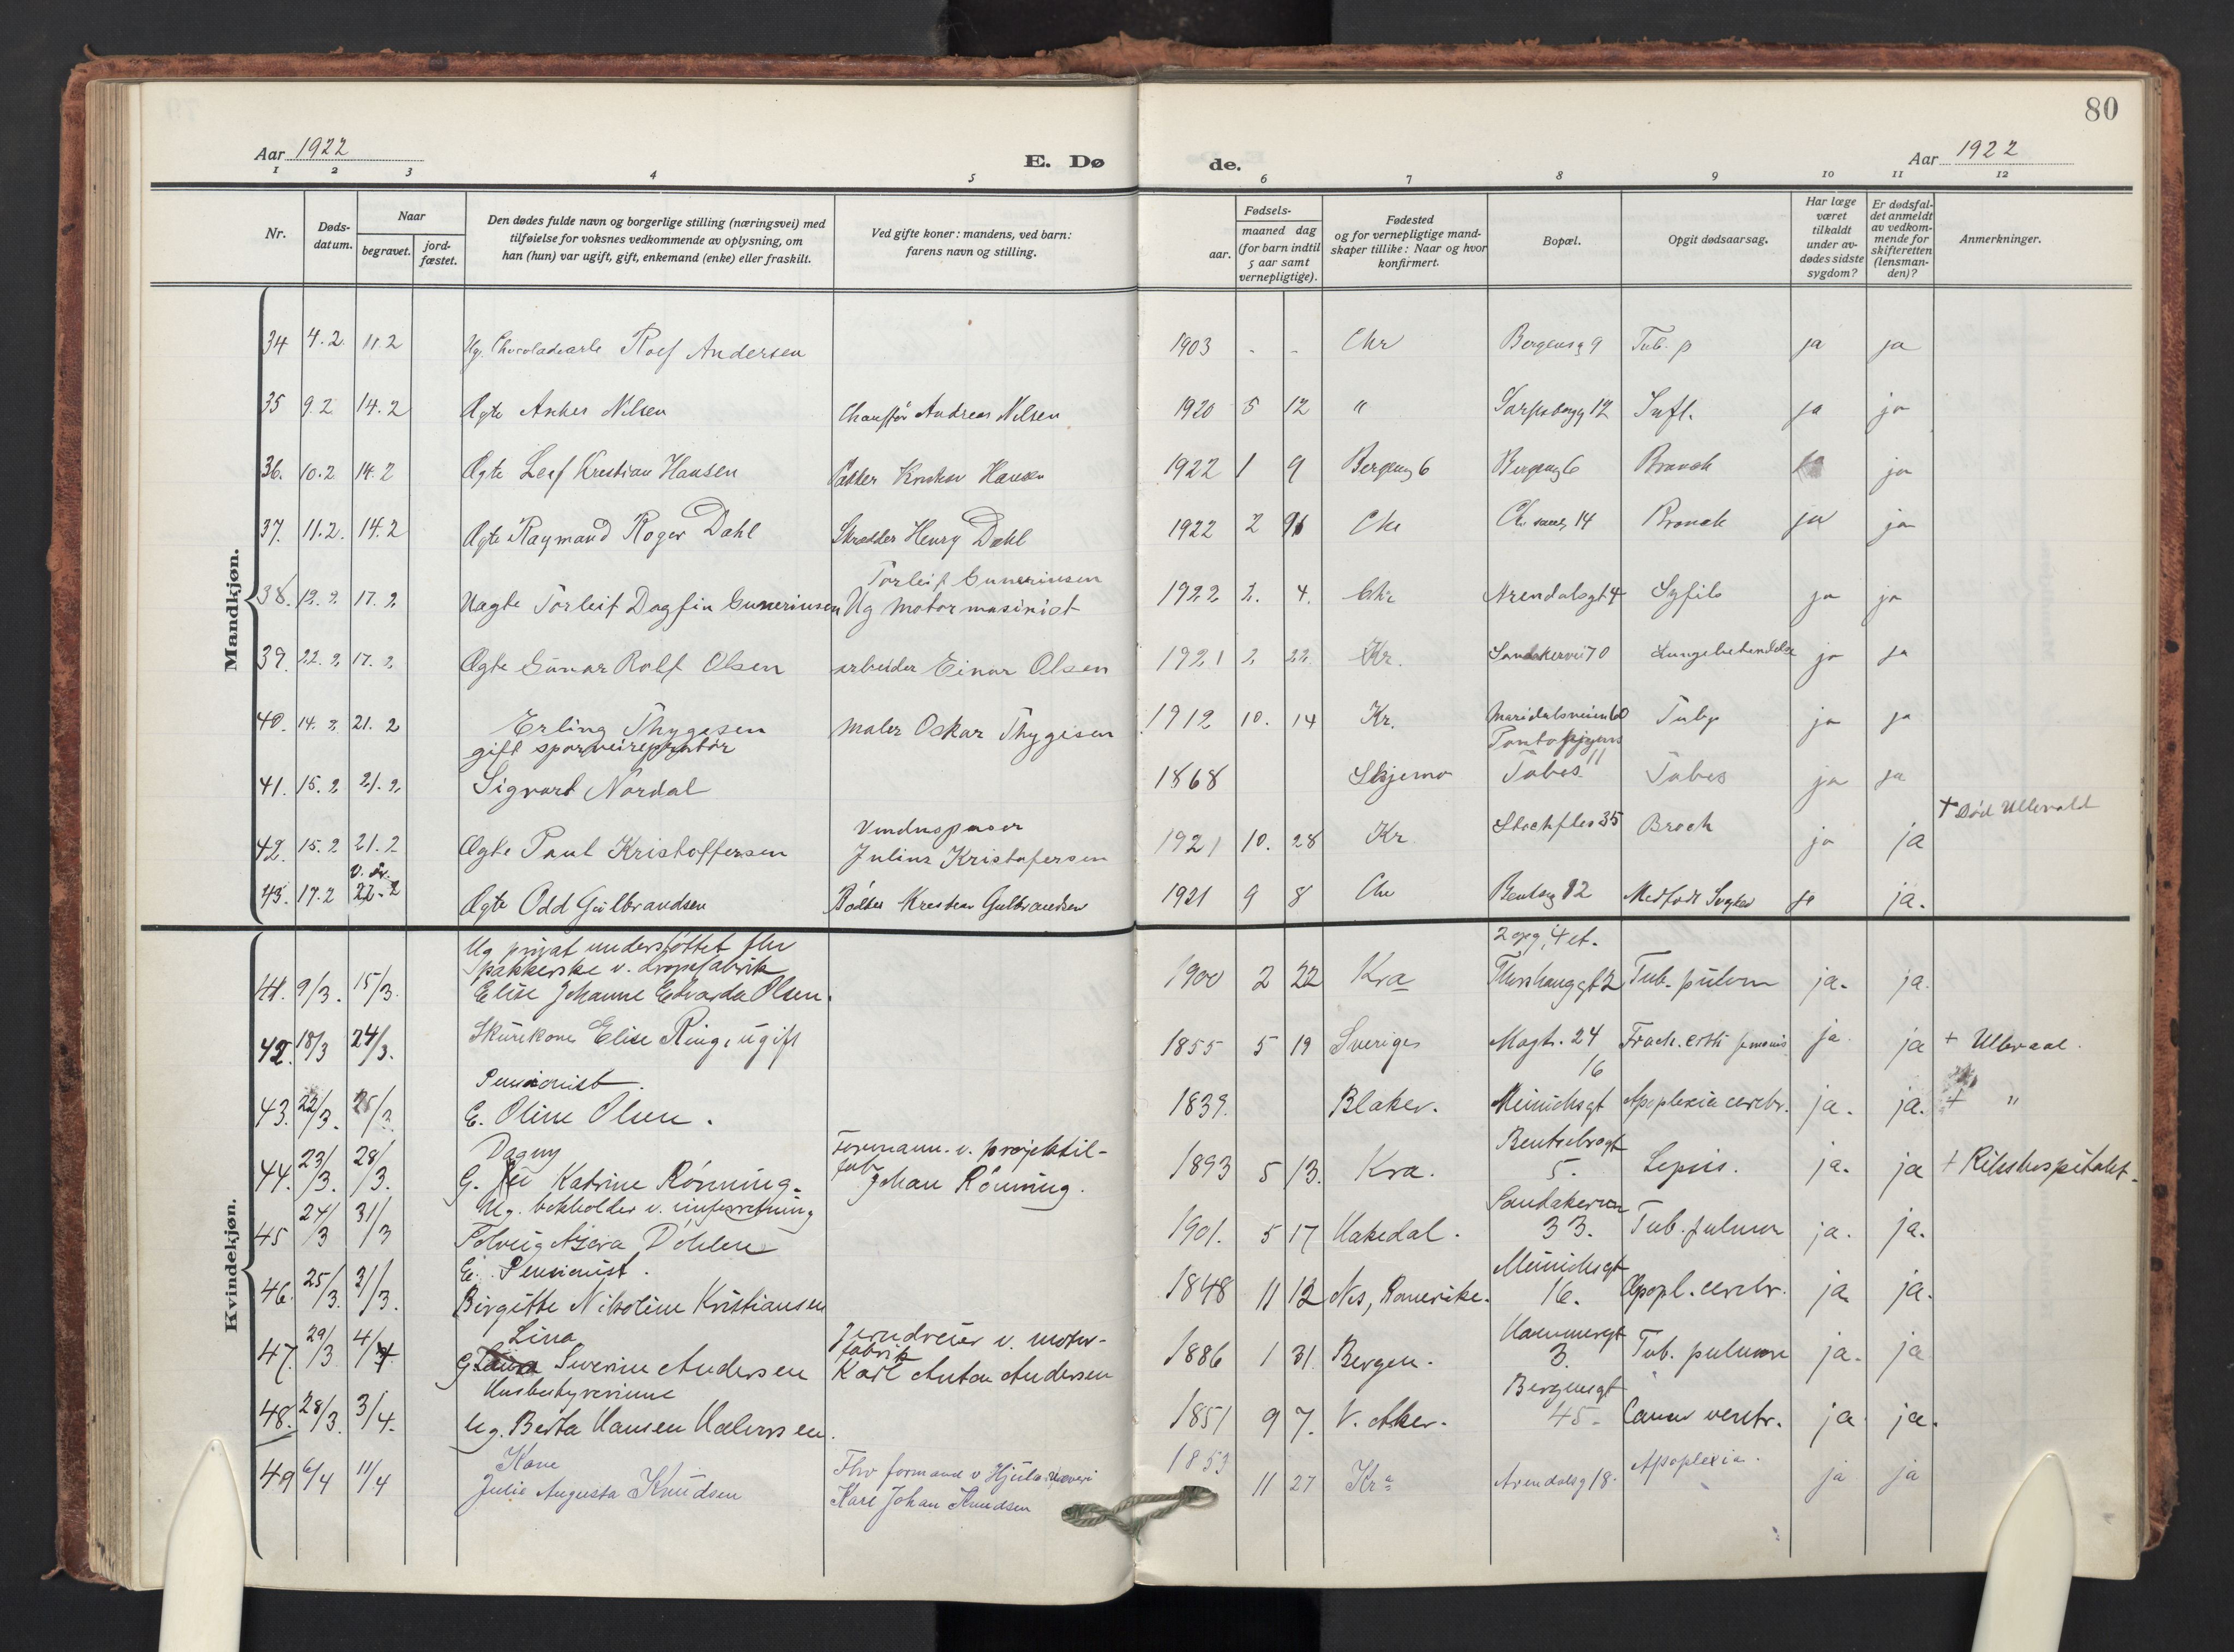 80
Aar 1922
E. Dø de.
Aar 1922
1 2 3 4 5 6 7 8 9 10 11 12
Nr.
Døds-datum.
Naar
begravet.
jord-fæstet.
Den dødes fulde navn og borgerlige stilling (næringsvei) med
tilføielse for voksnes vedkommende av oplysning, om
han (hun) var ugift, gift, enkemand (enke) eller fraskilt.
Ved gifte koner: mandens, ved barn:
farens navn og stilling.
Fødsels-
aar.
maaned dag
(for barn indtil
5 aar samt
vernepligtige).
Fødested
og for vernepligtige mand-
skaper tillike: Naar og hvor
konfirmert.
Bopæl.
Opgit dødsaarsag.
Har læge
været
tilkaldt
under av-
dødes sidste
sygdom?
Er dødsfal-
det anmeldt
av vedkom-
mende for
skifteretten
(lensman-
den)?
Anmerkninger.
Mandkjøn.
34 4.2. 11.2 Ug. Rolf Andersen 1903 - - Chr Bergensg 9 Tub. p ja ja
35 9.2 14.2 Ægte Nilsen Chauffør Andreas Nilsen 1920 5 12 " Sarpsborgg 12 Infl. ja ja
36. 10.2 14.2 Ægte Leif Kristian Hansen Hansen 1922 1 9 Bergensg 6 Bergensg 6 Bronch ja
37. 11.2. 14.2 Ægte Raymand Roger Dahl Skrædder Henry Dahl 1922 2 Chr 14 Bronch ja ja
Torleif Gunerinsen
38. 12.2 17.2 Uægte Torleif Dagfin Gunerinsen Ug motormasinist 1922 2. 4. Chr Arendalsgt 4 Syfilis ja ja
39. 22.2 17.2 Ægte Gunar Rolf Olsen arbeider Einar Olsen 1921 2 22 Kr. Sandakervei 70 Lungebetendelse ja ja
40. 14.2 21.2 Erling Thygesen maler Oskar Thygesen 1912 10. 14 Kr. Maridalsveien 60 Tubp ja ja
gift sporveireperatør
11
41. 15.2 21.2 Sigvart Nordal 1868 Tabes Tabes ja ja
+ Død Ullevold
Vinduspusser
42. 15.2 21.2 Ægte Paul Kristoffersen Julius Kristofersen 1921 10. 28 Kr 35 Broch ja ja
43. 17.2 22.2 Ægte Odd Gulbrandsen Bødker Kristian Gulbrandsen 1921 9 8 Chr Bentsg 12 Medfødt ja ja.
Kvindekjøn.
Ug privat understøttet
2 opg, 4 et.
pakkerske v. dropsfabrik
41. 9/3. 15/3. Elise Johanne Edvarda Olsen. 1900 2 22 Kra 2 Tub. pulm ja. ja.
42. 18/3 24/3. Skurekone Elise Ring, ugift 1855 5 19 Sverige Magts. 24 Fract. ja. ja + Ullevaal.
Pensionist.
16
43. 22/3. 25/3 E. Oline Olsen. 1839. Blaker. Meinichsgt Apoplexia cerebr. ja. ja. + "
Dagny
Formann. v. projektil-
Bentsebrogt
44. 23/3. 28/3. G. Katrine Rönning. fabr Johan Rönning. 1893 5 13. Kra. 5. Sepsis. ja. ja + Rikshospitalet.
Ug. bokholder v.
Sandakerveien
45 24/3 31/3 Solveig Döhlen 1901. 5 17 Hakedal. 33. Tub. pulmon ja. ja.
E. Pensionist.
Meinichsgt
46. 25/3. 31/3. Birgitte Nikoline Kristiansen 1848 11 12 Nes, Romerike. 16. Apopl. cerebr. ja. ja.
Lina
Jerndreier v. motor-
fabrik
47. 29/3 4/4. G Severine Andersen Karl Anton Andersen 1886 1 31. Bergen. 3. Tub. pulmon ja. ja
Husbestyrerinne
Bergensgt
48. 28/3. 3/4. Ug. Berta Hansen Halvorsen. 1851 9 7. V. Aker. 45. Cancer ventr. ja ja.
Kone
Fhv formand v Hjula væveri
49 6/4 11/4 Julie Augusta Knudsen Karl Johan Knudsen 1853 11 27 Kra Arendalsg 18. Apoplexia. ja ja